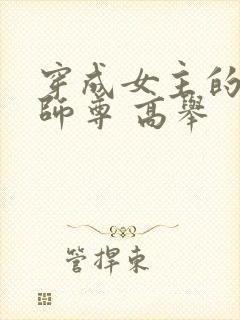 穿成女主的
師尊 高舉
管捍東